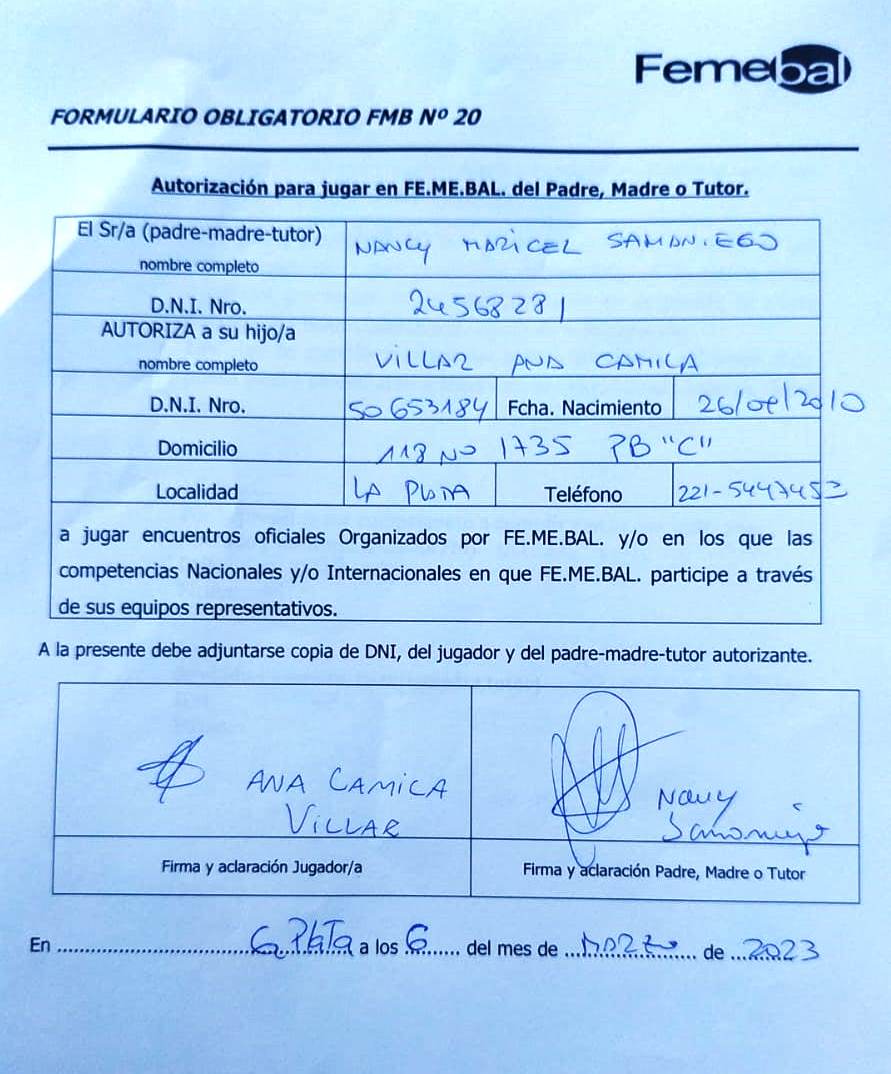 Femebal
FORMULARIO OBLIGATORIO FMB Nº 20
Autorización para jugar en FE.ME.BAL. del Padre, Madre o Tutor.
El Sr/a (padre-madre-tutor) NANCY MARICEL SAMANIEGO
nombre completo
D.N.I. Nro. 24568281
AUTORIZA a su hijo/a
nombre completo VILLAR ANA CAMILA
D.N.I. Nro. 50653184 Fcha. Nacimiento 26/ /2010
Domicilio 118 Nº 1735 PB "C"
Localidad LA PLATA Teléfono 221-5447453
a jugar encuentros oficiales Organizados por FE.ME.BAL. y/o en los que las
competencias Nacionales y/o Internacionales en que FE.ME.BAL. participe a través
de sus equipos representativos.
A la presente debe adjuntarse copia de DNI, del jugador y del padre-madre-tutor autorizante.
ANA CAMILA
VILLAR
Nancy
Samaniego
Firma y aclaración Jugador/a
Firma y aclaración Padre, Madre o Tutor
En La Plata a los 6 del mes de MARZO de 2023